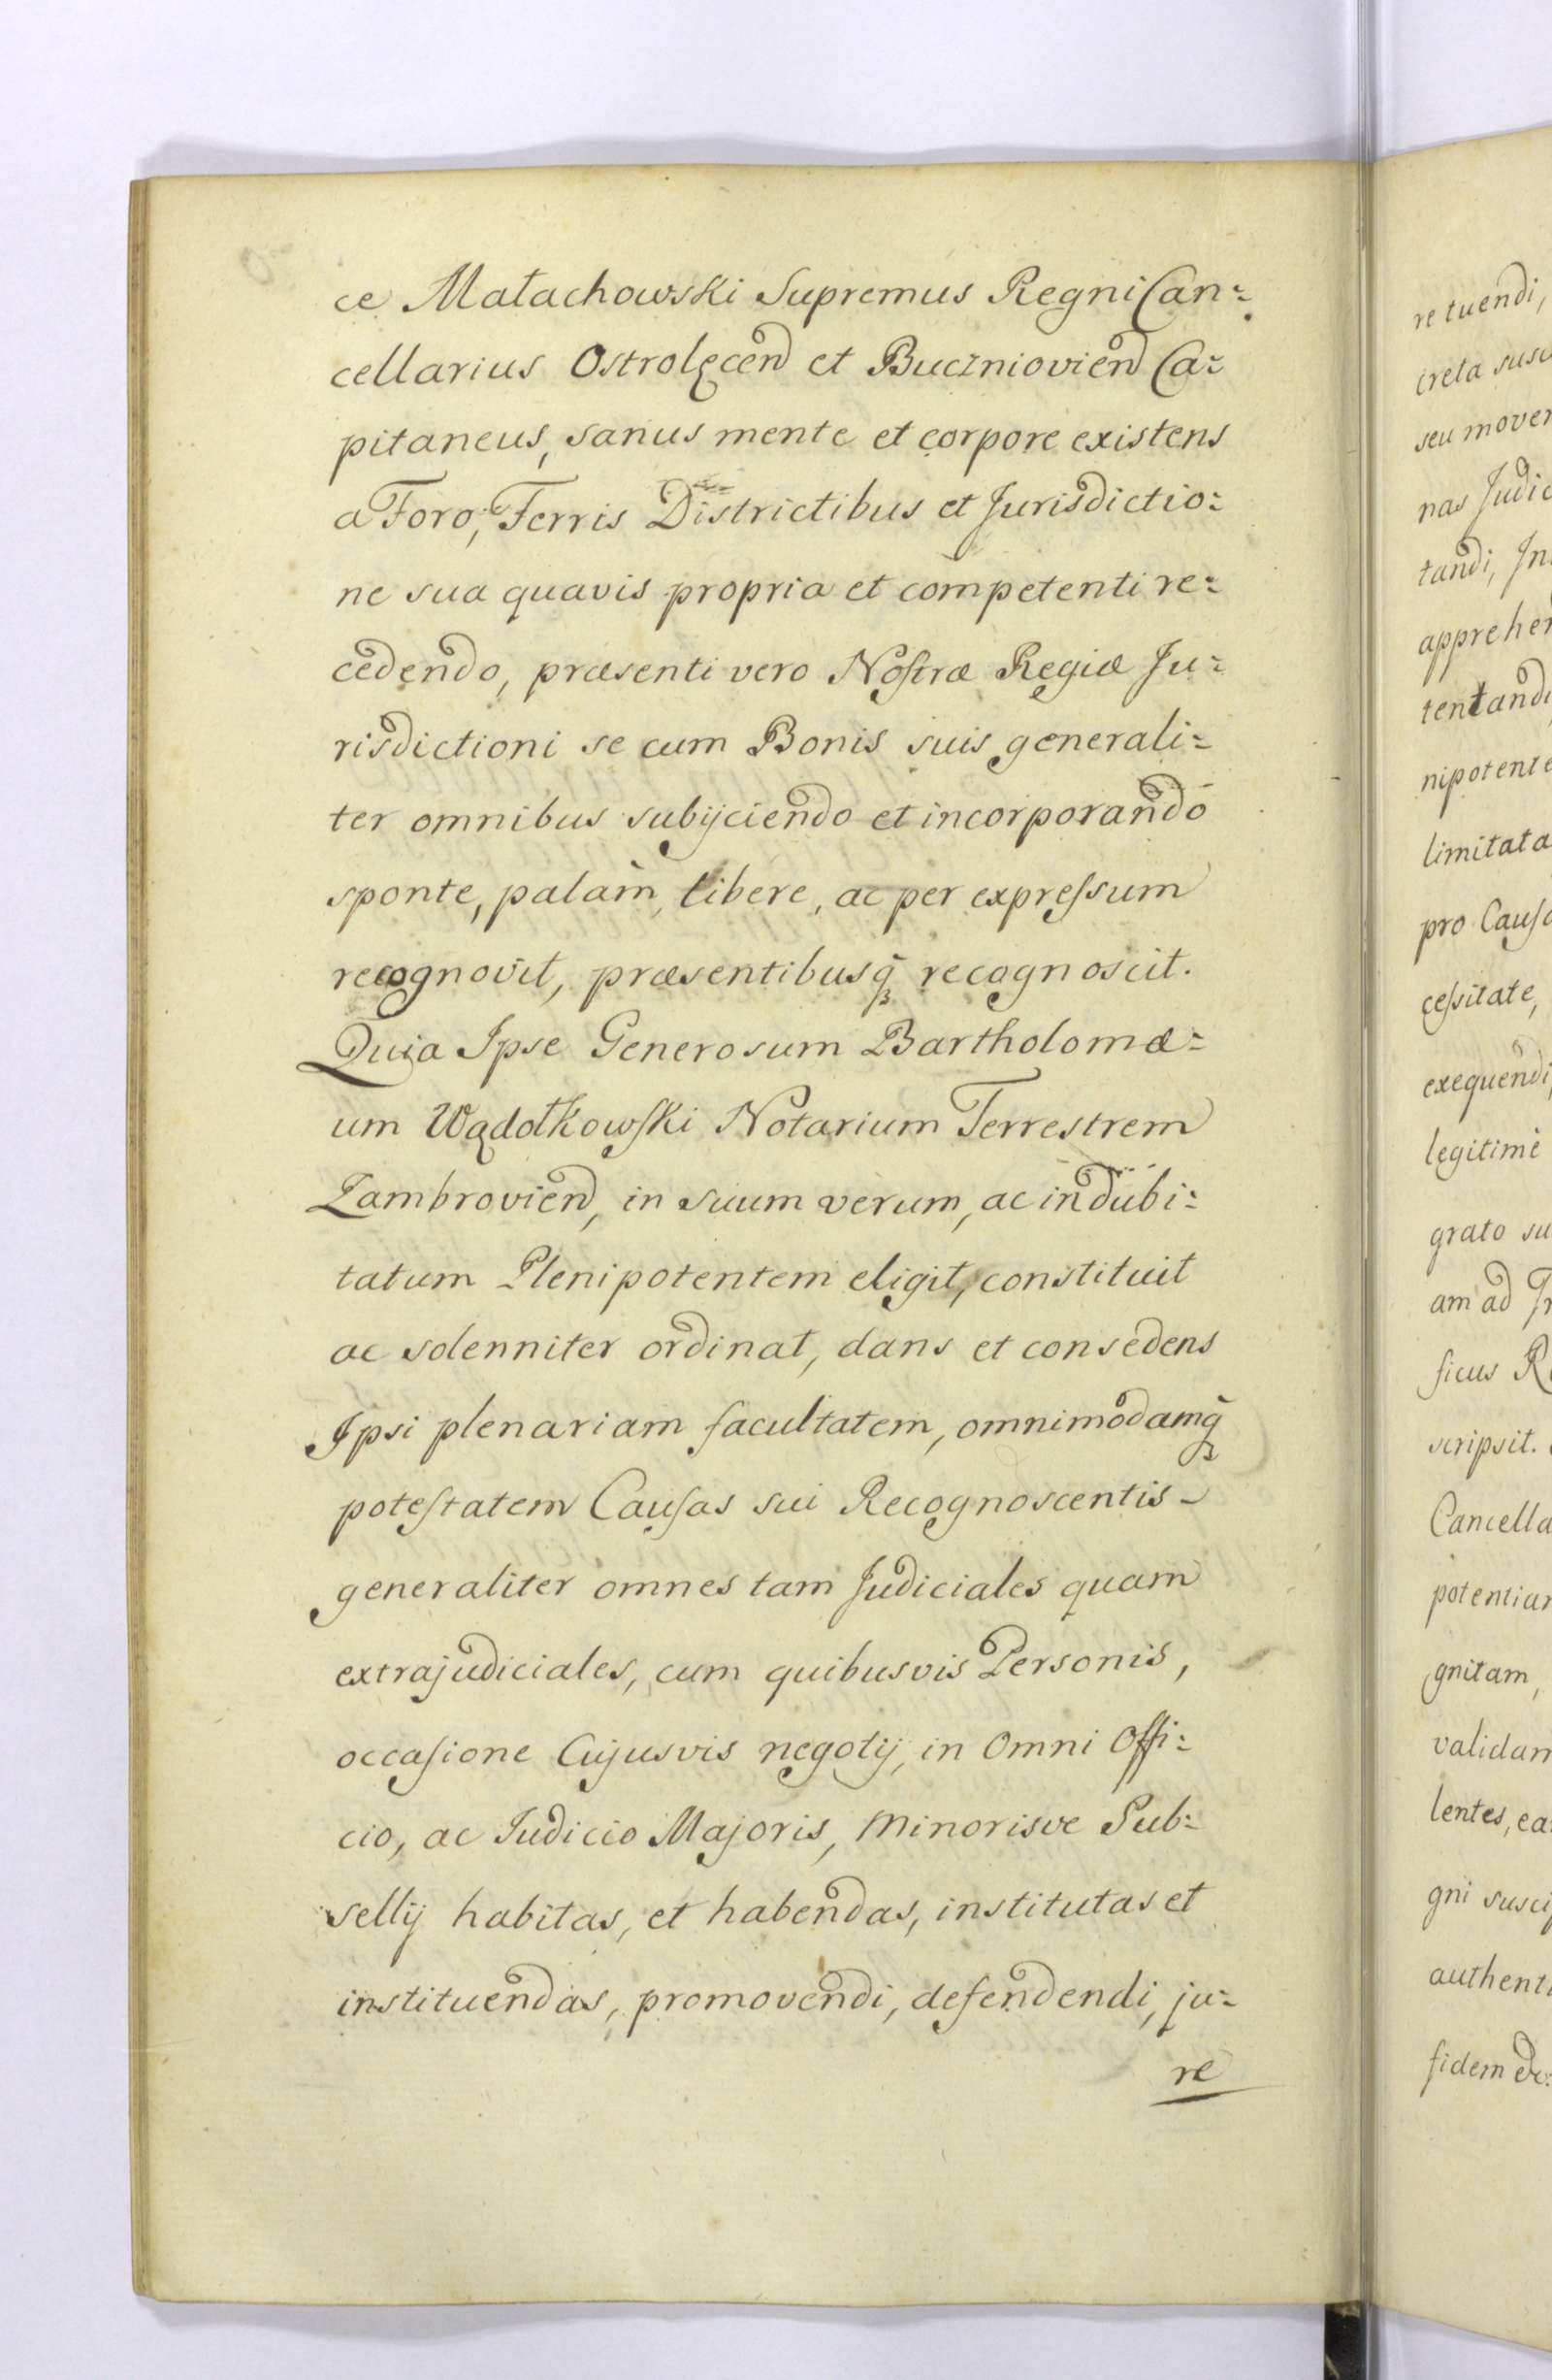 ce Małachowski Supremus Regni Can⹀
cellarius Ostrolęcen̄d et Buczniovien̄d Ca⹀
pitaneus, sanus mente et corpore existens
a Foro, Terris Districtibus et Jurisdictio⹀
ne sua quavis propria et competenti re⹀
cedendo, præsenti vero Noſtræ Regiæ Ju⹀
risdictioni se cum Bonis suis generali⹀
ter omnibus subijciendo et incorporando
sponte, palàm, libere, ac per expreſsum
recognovit, præsentibusq̃ recognoscit.
Quia Ipse Generosum Bartholomæ⹀
um Wądołkowſki Notarium Terrestrem
Zambrovien̄d, in suum verum, ac indubi⹀
tatum Plenipotentem eligit, constituit
ac solenniter ordinat, dans et consedens
Ipsi plenariam facultatem, omnimodamq̃
poteſtatem Cauſas sui Recognoscentis
generaliter omnes tam Judiciales quam
extrajudiciales, cum quibusvis Personis,
occaſione Cujusvis negotij, in Omni Offi⹀
cio, ac Judicio Majoris, Minorisve Sub⹀
sellij habitas, et habendas, institutas et
instituendas, promovendi, defendendi, ju⹀
re
re tuendi,
creta susc
seu mover
nas Judic
tandi, In
apprehen
tentandi
nipotente
limitata
pro Cauſa
ceſsitate,
exequendi,
legitimè
grato su
am ad In
ficus Re
scripsit.
Cancella
potentiam
gnitam,
validam
lentes, ea
gni suscip
authenti
fidem &c: